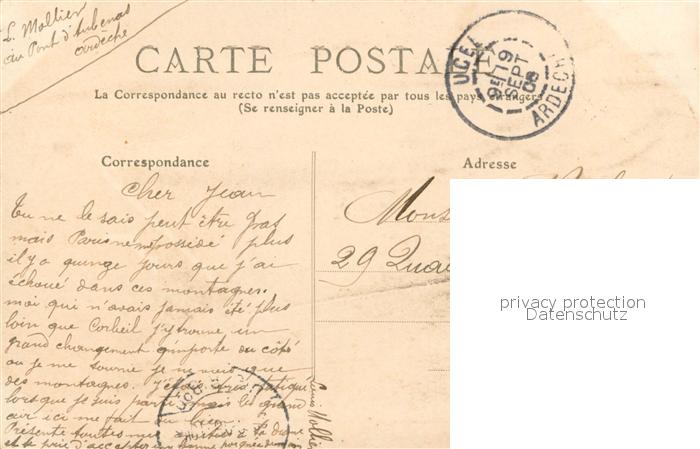 L. Mollier
au Pont d'Aubenas
Ardèche
CARTE POSTALE
La Correspondance au recto n'est pas acceptée par tous les pays étrangers
(Se renseigner à la Poste)
UCEL
9E 19
SEPT
06
ARDECHE
Correspondance
Adresse
Cher Jean
Tu ne le sais peut être pas
mais Paris ne m'possidé plus
il y a quinze jours que j'ai
échoué dans ces montagnes.
moi qui n'avais jamais été plus
loin que Corbeil j'y trouve un
grand changement q'importe du côté
ou je me tourne je ne vois que
des montagnes. J'étais très fatigué
lorsque je suis parti mais le grand
air ici me fait du bien.
Présente toutes mes amitiés à ta dame
et te prie d'accepter une bonne poignée de main
Louis Mollier
Mons
29 Quai
privacy protection
Datenschutz